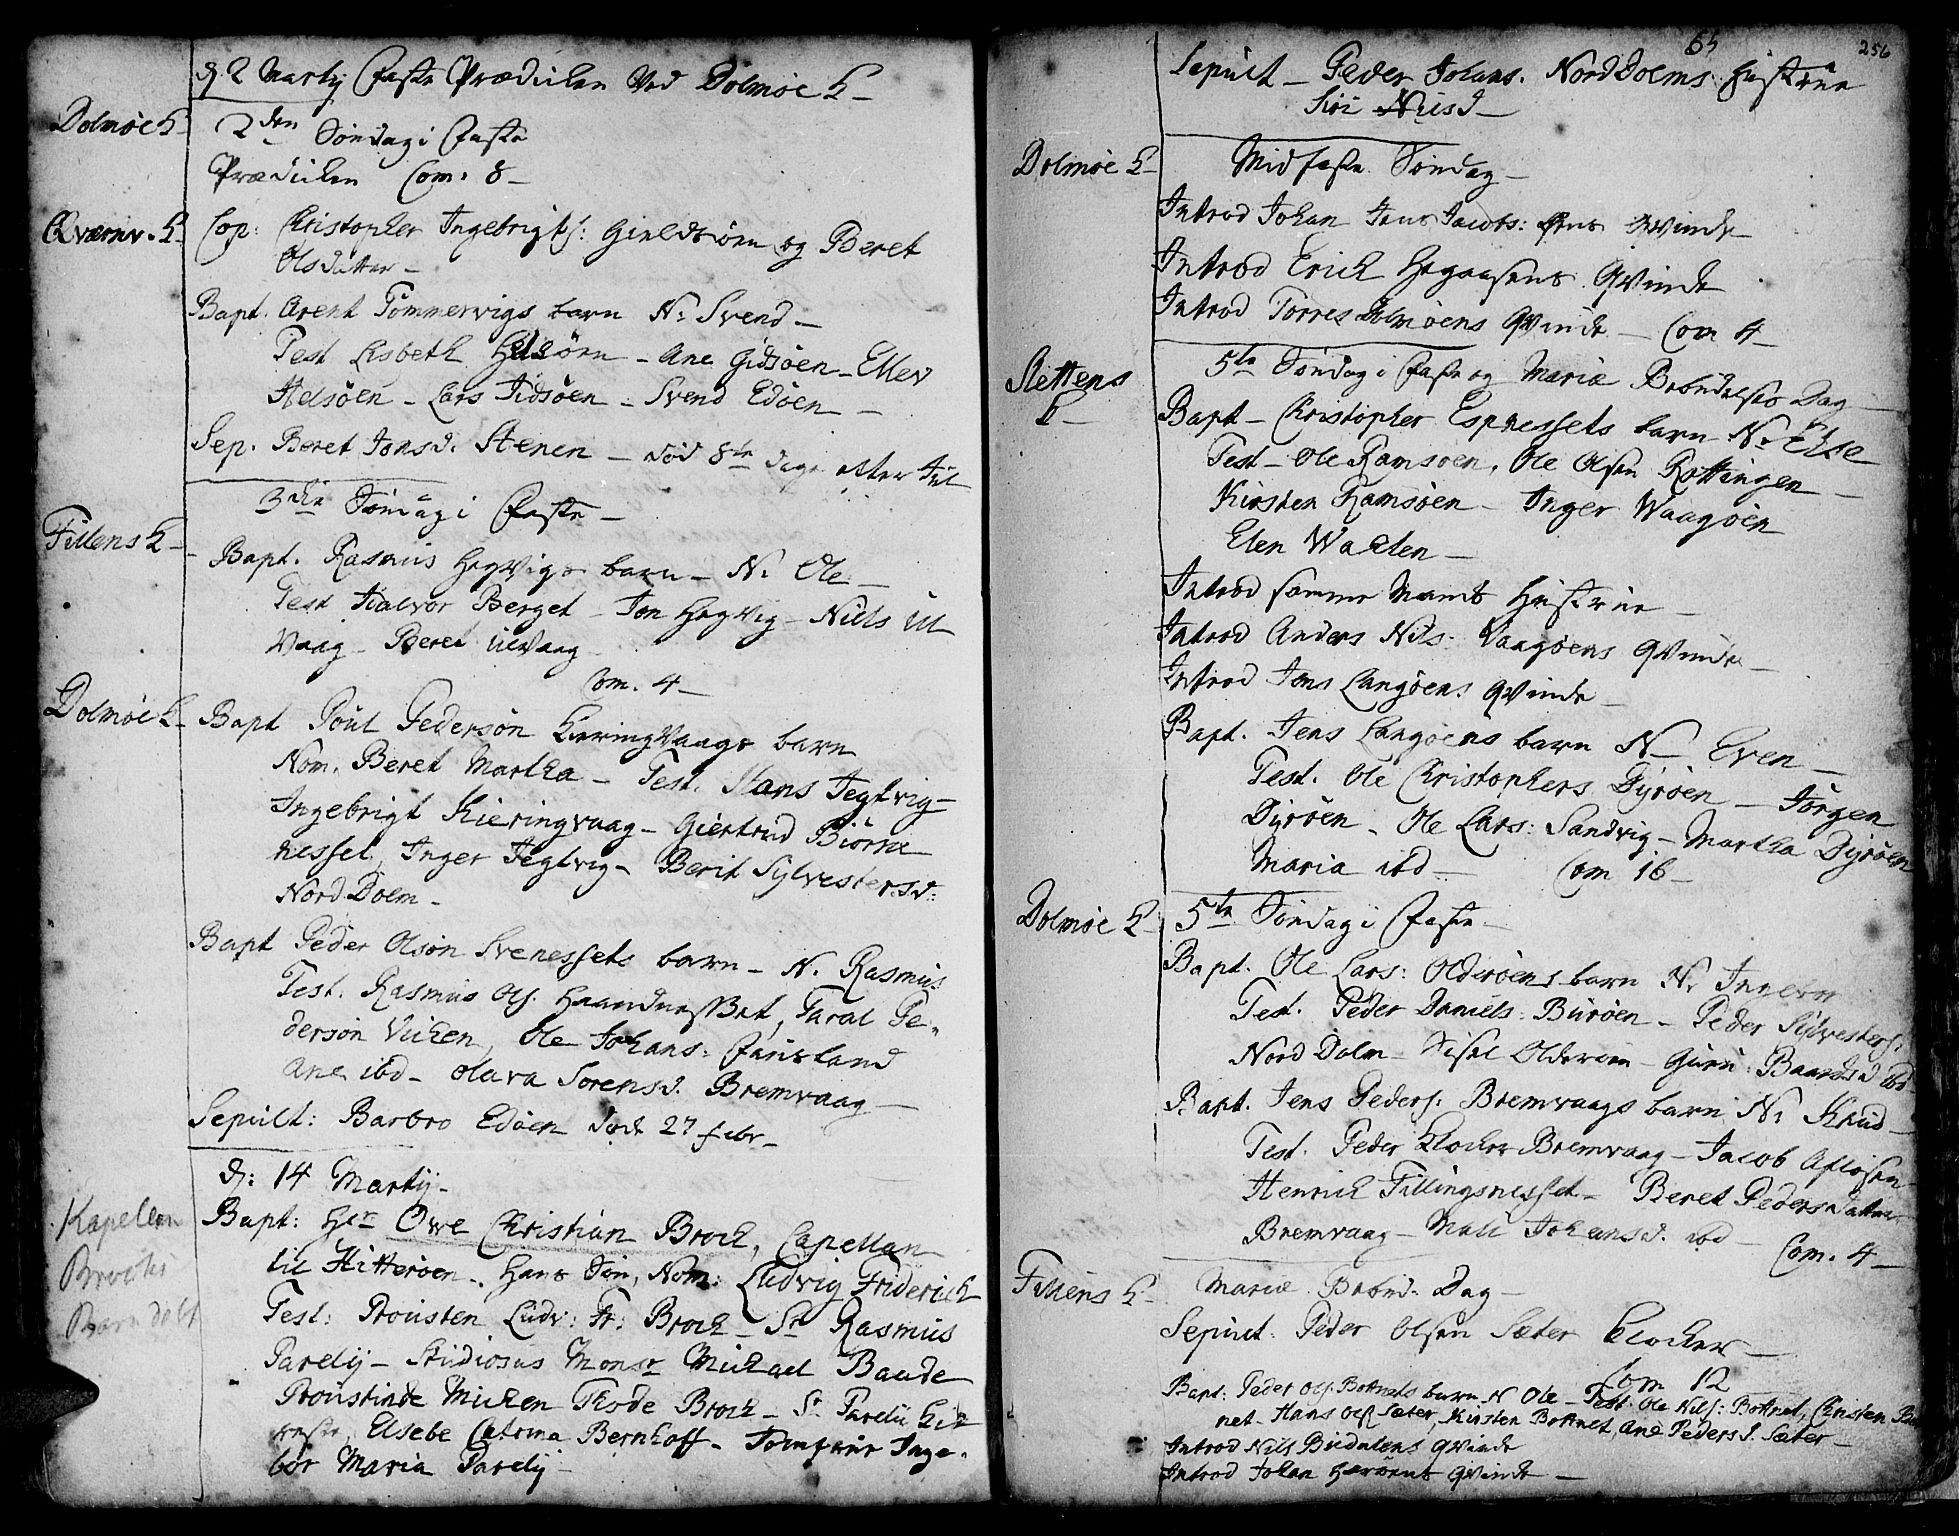 d. 2 Martij Faste Prædicken Ved Dolmøe K
Dolmøe K
2den Søndag i Faste
Prædicken Com. 8
Qværnv. K
Cop: Christopher Ingebrigts: Gieldsøen og Beret
Olsdatter
Bapt. Arent Tømmervigs barn N. Svend
Test Lisbeth Helsøen - Ane Gidsøen - Ellev
Helsøen - Lars Jidsøen - Svend Edøen
Sep. Beret Jonsd. Stenen - død 8te dage etter Jul
3die Søndag i Faste
Fillens K
Bapt. Rasmus HegVigs barn - N. Ole
Test Halvor Berget - Jon HegVig - Niels Ul
Vaag - Beret Ulvaag
Com. 4
Dolmøe K
Bapt Poul Pedersøn KieringVaags barn
Nom. Beret Martha - Test. Hans Jegtvig
Ingebrigt Kieringvaag - Giertrud Biørne
nesset, Inger Jegtvig - Berit Sylvestersd:
Nord Dolm
Bapt Peder Olsøn Svenessets barn - N. Rasmus
Test. Rasmus Ols. Haandnessset, Taral Pe-
dersøn Vicken, Ole Johans:
Ane ibd - Olava Sorensd. Bremvaag
Sepult: Barbro Edøen død 27 febr
d: 14 Martij
Kapellan
Brochs
Barn døbt
Bapt: Hr Owe Christian Broch, Capellan
til Hitterøen. Hans Søn, Nom: Ludvig Friderich
Test: Prousten Ludv: Fr: Broch - Sr Rasmus
Parelij - Studiosus Monsr Michael Baade
Proustinde Micken Thode Broch - Sr Parelii Kie
reste, Elsebe Catrina Bernhoff - Jomfrue Inge-
bor Maria Parelij
65
256
Sepult - Peder Johans. NordDolms Hustrue
Siri Nilsd
Dolmøe K
Midfaste Søndag
Introd Johan Jens Jacobs: Qvinde
Introd Erich Hegaasens Qvinde
Introd Torres Dolmøens Qvinde - Com 4
Slettens
K
5te Søndag i Faste og Mariæ Bebudelses Dag
Bapt - Christopher Espnessets barn N. Else
Test - Ole Ramsøen, Ole Olsen Røttingen
Kirsten Ramsøen - Inger Waagøen
Elen Walten
Introd samme Mands Hustrue
Introd Anders Nils: Vaagøens Qvinde
Introd Jens Langøens Qvinde
Bapt. Jens Langøens barn N. Even
Test. Ole Christophers Dyrøen - Jørgen
Dyrøen - Ole Lars: Sandvig - Martha Dyrøen
Maria ibd Com 16
Dolmøe K
5te Søndag i Faste
Bapt. Ole Lars: Olderøens barn N. Ingebor
Test. Peder Daniels: Burøen - Peder Sylvesters:
Nord Dolm - Sisel Olderøen - Guru Baardsd ibd
Bapt. Jens Peders: Bremvaags barn N. Knud
Test. Peder Klocker Bremvaag - Jacob Afløsen
Henrich Fillingsnesset - Beret Pedersdatter
Bremvaag - Mali Johansd. ibd Com. 4
Fillens K
Mariæ Bebud. Dag
Sepult. Peder Olsen Sæter Klocker
Com 12
Bapt: Peder Ols. Botnets barn N Ole - Test: Ole Nils: Botnet, Christen Bot
net - Hans Ols Sæter, Kirsten Botnet, Ane Pedersd. Sæter
Introd Nils Budalens Qvinde
Introd Johan Herøens Qvinde